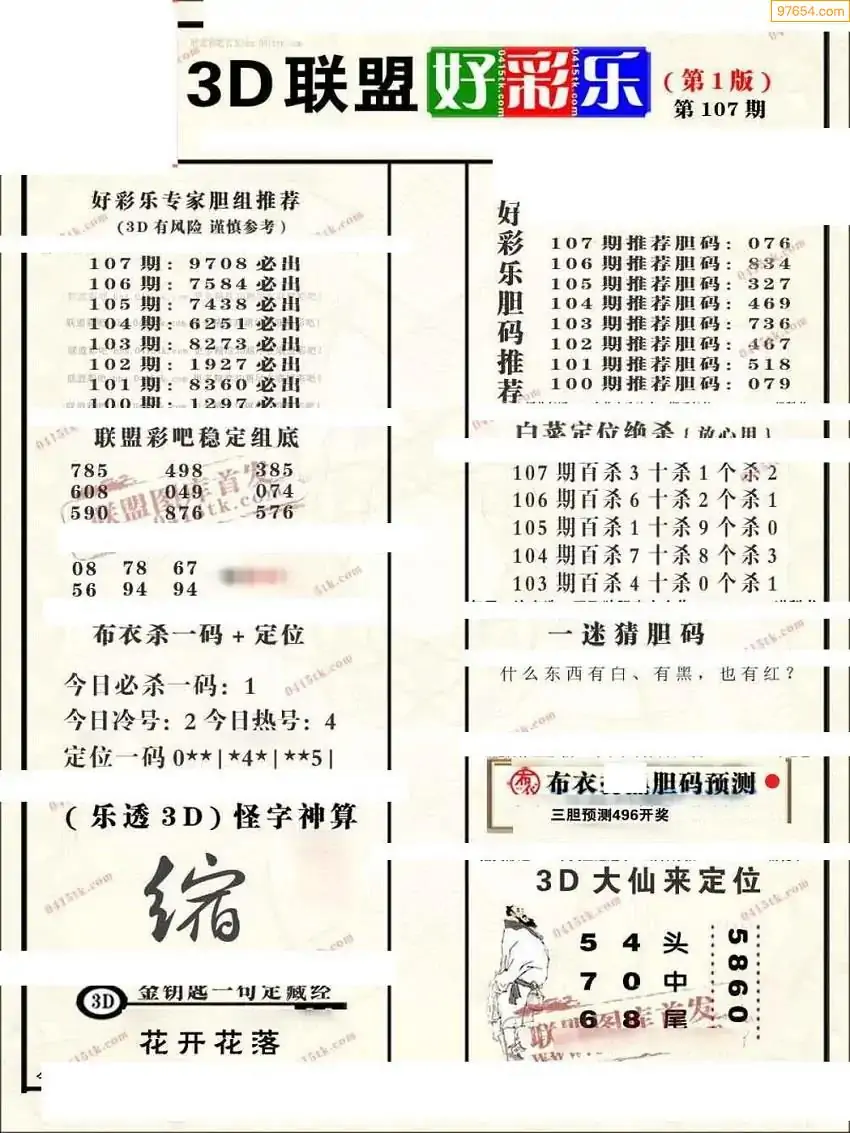 97654.com
3D联盟好彩乐
(第1版)
第107期
好彩乐专家胆组推荐
(3D有风险 谨慎参考)
107期: 9708必出
106期: 7584必出
105期: 7438必出
104期: 6251必出
103期: 8273必出
102期: 1927必出
101期: 8360必出
100期: 1297必出
联盟彩吧稳定组底
785 498 385
608 049 074
590 876 576
08 78 67
56 94 94
布衣杀一码+定位
今日必杀一码: 1
今日冷号: 2 今日热号: 4
定位一码0**|*4*|**5|
(乐透3D)怪字神算
缩
3D 金钥匙一句定藏经
花开花落
好彩乐胆码推荐
107期推荐胆码: 076
106期推荐胆码: 834
105期推荐胆码: 327
104期推荐胆码: 469
103期推荐胆码: 736
102期推荐胆码: 467
101期推荐胆码: 518
100期推荐胆码: 079
白菜定位绝杀{放心用}
107期百杀3十杀1个杀2
106期百杀6十杀2个杀1
105期百杀1十杀9个杀0
104期百杀7十杀8个杀3
103期百杀4十杀0个杀1
一迷猜胆码
什么东西有白、有黑，也有红?
布衣 布衣 胆码预测
三胆预测496开奖
3D大仙来定位
5 4 头
7 0 中
6 8 尾
5860
联盟图库首发
0415tk.com